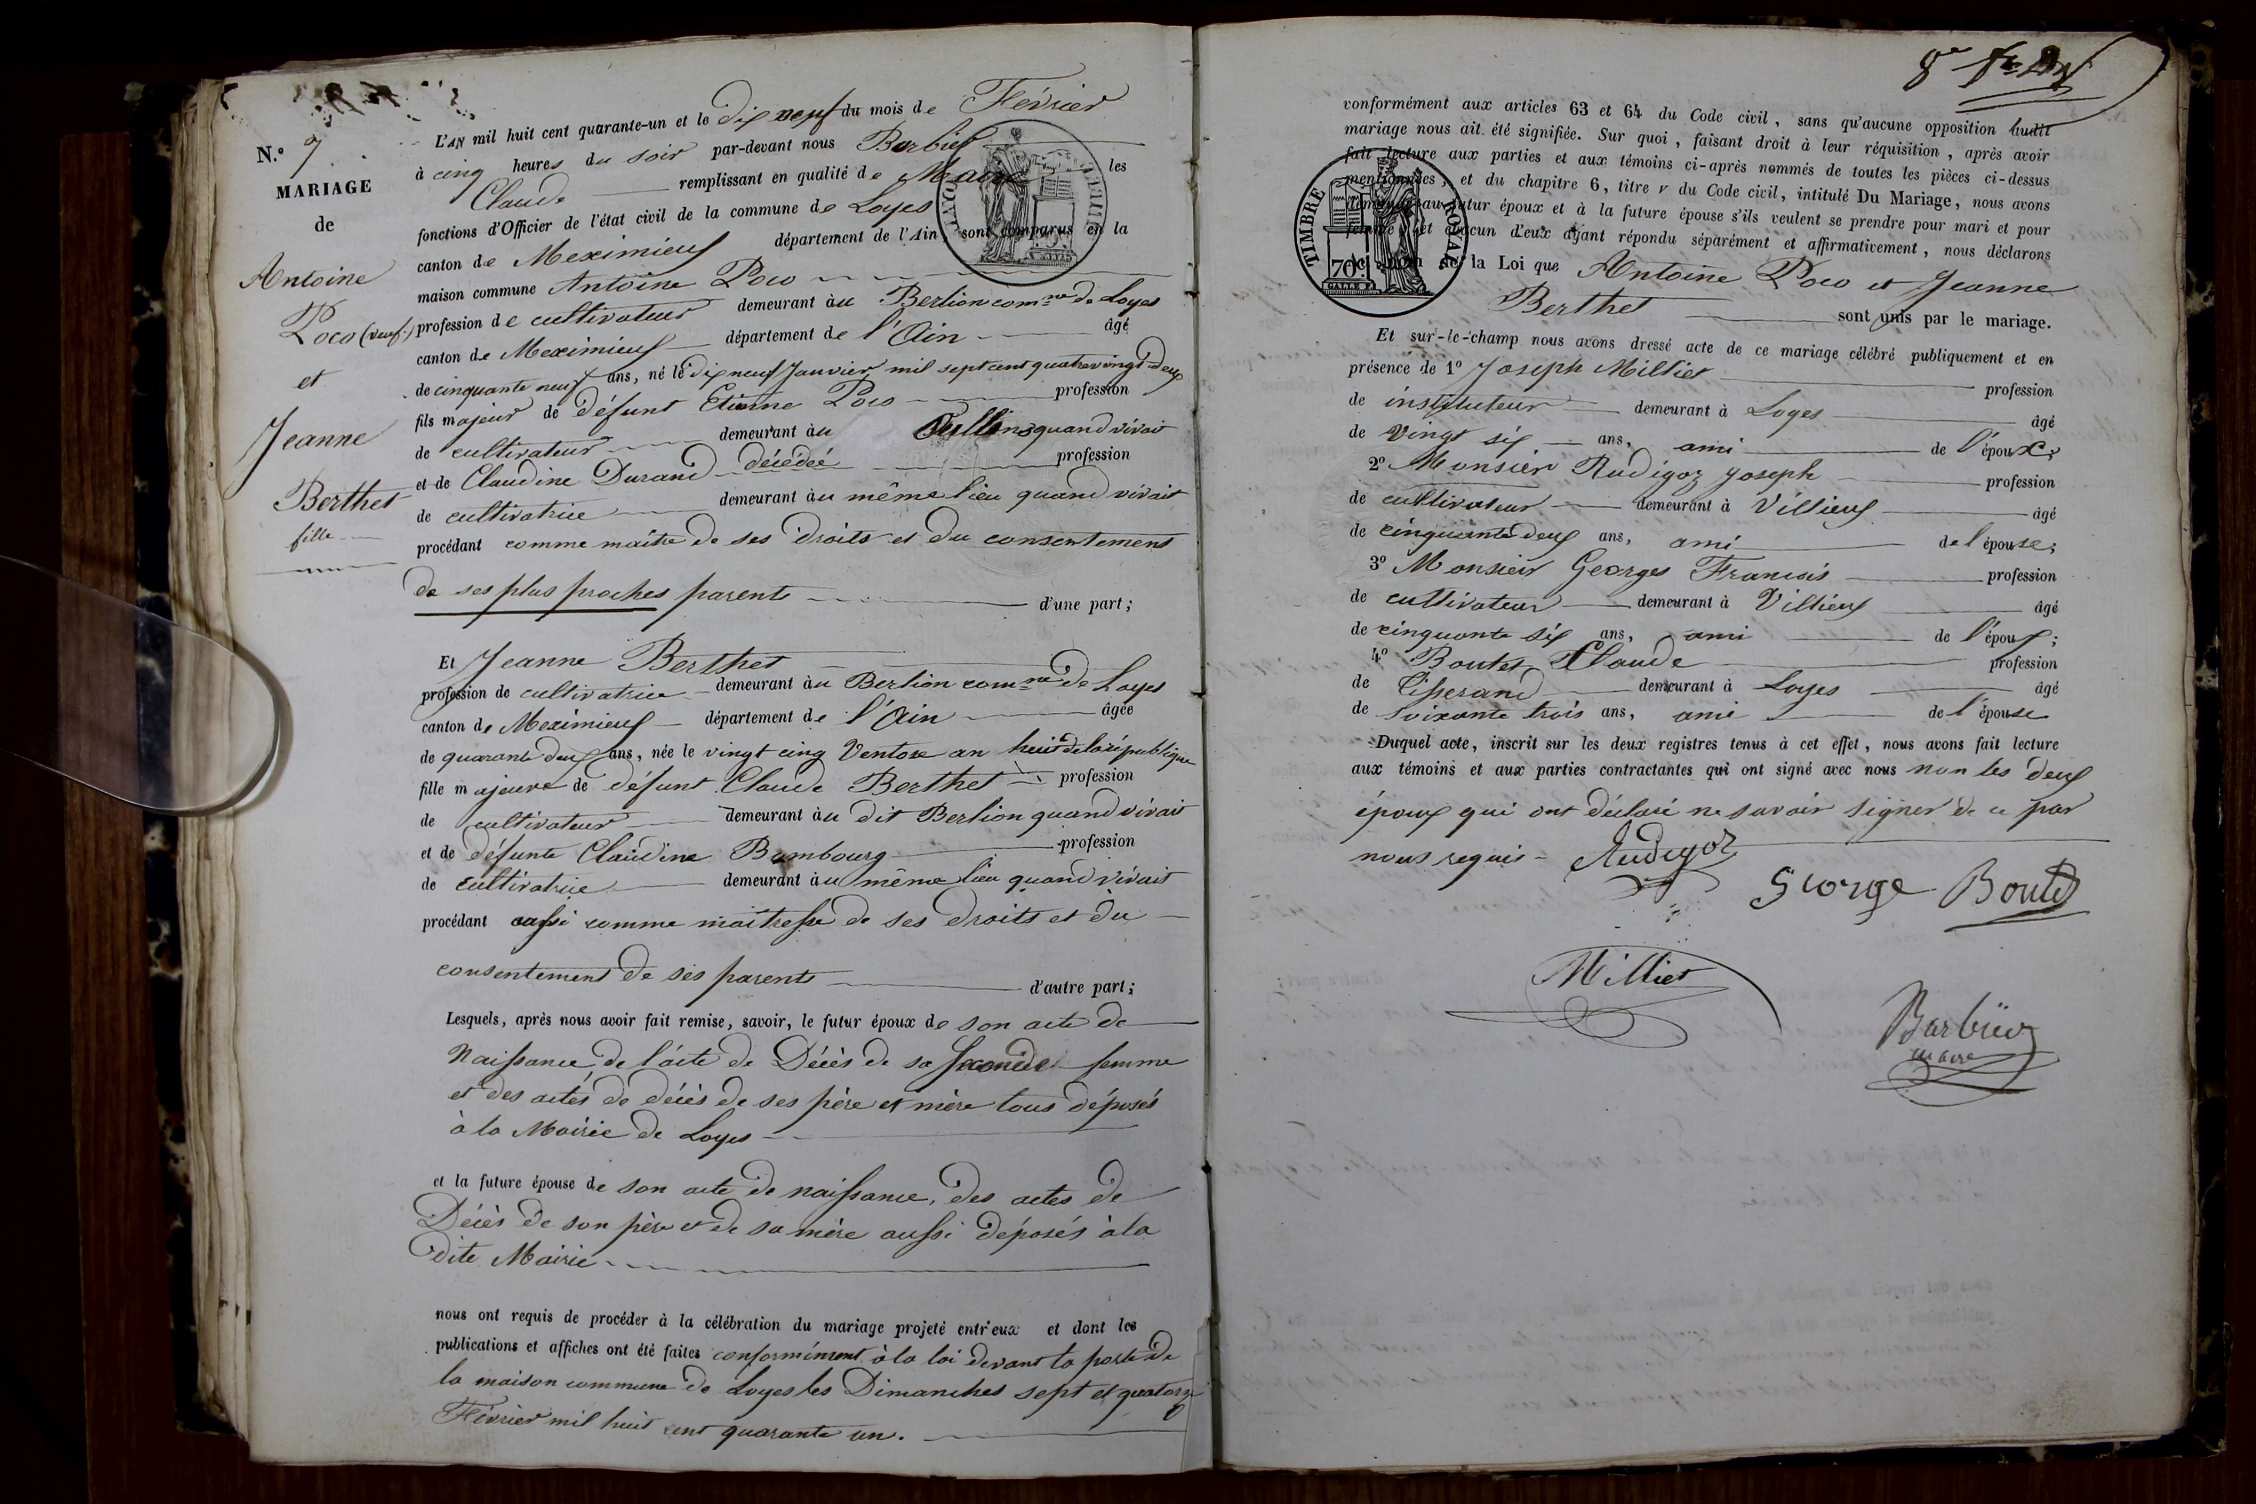 N.° 7
MARIAGE
de
Antoine
Poco (veuf)
et
Jeanne
Berthet
fille
L'AN mil huit cent quarante-un et le dix neuf du mois de Février
à cinq heures du soir par-devant nous Barbier
Claude remplissant en qualité de Maire les
fonctions d'Officier de l'état civil de la commune de Loyes
canton de Meximieux département de l'Ain, sont comparus en la
maison commune Antoine Poco
profession de cultivateur demeurant àu Bertion com.ne de Loyes
canton de Meximieux département de l'Ain âgé
de cinquante neuf ans, né le dix neuf Janvier mil sept cent quatrevingt deux
fils majeur de défunt Etienne Poco profession
de cultivateur demeurant àu Tullins quand vivait
et de Claudine Durand décédée profession
de cultivatrice demeurant àu même lieu quand vivait
procédant comme maître de ses droits et du consentement
de ses plus proches parents d'une part;
Et Jeanne Berthet
profession de cultivatrice demeurant àu Bertion com.ne de Loyes
canton de Meximieux département de l'Ain âgée
de quarante deux ans, née le vingt cinq Ventose an huit de la république
fille majeure de défunt Claude Berthet profession
de cultivateur demeurant àu dit Bertion quand vivait
et de défunte Claudine Bambourg profession
de cultivatrice demeurant àu même lieu quand vivait
procédant aussi comme maîtresse de ses droits et du
consentement de ses parents d'autre part;
Lesquels, après nous avoir fait remise, savoir, le futur époux de son acte de
Naissance, de l'acte de Décès de sa seconde femme
et des actes de décès de ses père et mère tous déposés
à la Mairie de Loyes
et la future épouse de son acte de naissance, des actes de
Décès de son père et de sa mère aussi déposés à la
dite Mairie
nous ont requis de procéder à la célébration du mariage projeté entr'eux et dont les
publications et affiches ont été faites conformément à la loi devant la porte de
la maison commune de Loyes les Dimanches sept et quatorze
Février mil huit cent quarante un.
8e
conformément aux articles 63 et 64 du Code civil, sans qu'aucune opposition audit
mariage nous ait été signifiée. Sur quoi, faisant droit à leur réquisition, après avoir
fait lecture aux parties et aux témoins ci-après nommés de toutes les pièces ci-dessus
mentionnées, et du chapitre 6, titre v du Code civil, intitulé Du Mariage, nous avons
demandé au futur époux et à la future épouse s'ils veulent se prendre pour mari et pour
femme, et chacun d'eux ayant répondu séparément et affirmativement, nous déclarons
au nom de la Loi que Antoine Poco et Jeanne
Berthet sont unis par le mariage.
TIMBRE ROYAL
70c
Et sur-le-champ nous avons dressé acte de ce mariage célébré publiquement et en
présence de 1° Joseph Milliet profession
de instituteur demeurant à Loyes âgé
de vingt six ans, ami de l'époux;
2° Monsieur Rudigoz Joseph profession
de cultivateur demeurant à Villieux âgé
de cinquante deux ans, ami de l'épouse;
3° Monsieur Georges Francois profession
de cultivateur demeurant à Villieux âgé
de cinquante six ans, ami de l'époux;
4° Boutet Claude profession
de Tisserand demeurant à Loyes âgé
de soixante trois ans, ami de l'épouse
Duquel acte, inscrit sur les deux registres tenus à cet effet, nous avons fait lecture
aux témoins et aux parties contractantes qui ont signé avec nous non les deux
époux qui ont déclaré ne savoir signer de ce par
nous requis - Rudigoz
George Boutet
Milliet
Barbier
maire